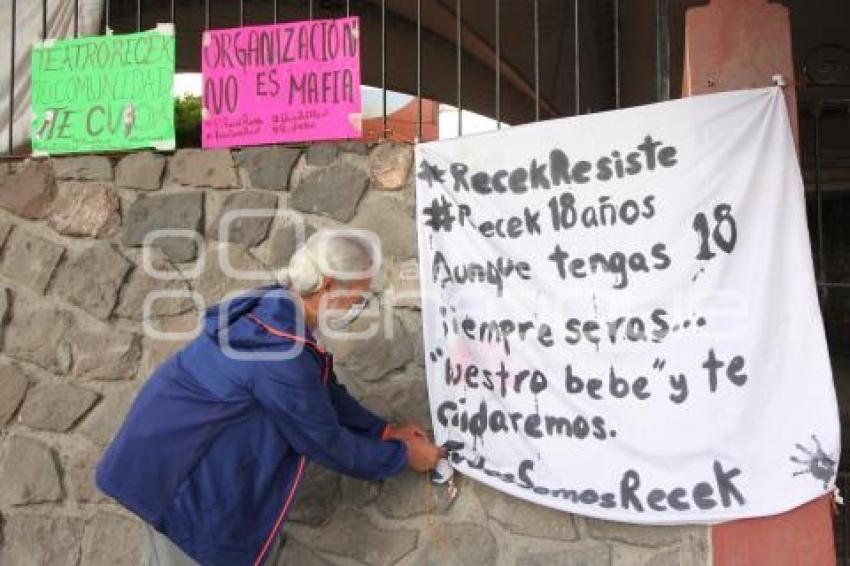 TEATRO RECEK
TU COMUNIDAD
TE CUIDA
ORGANIZACIÓN
NO ES MAFIA
#RecekResiste
#Recek 18 años
Aunque tengas 18
Siempre seras...
"Nuestro bebe" y te
Cuidaremos.
#TodosSomosRecek